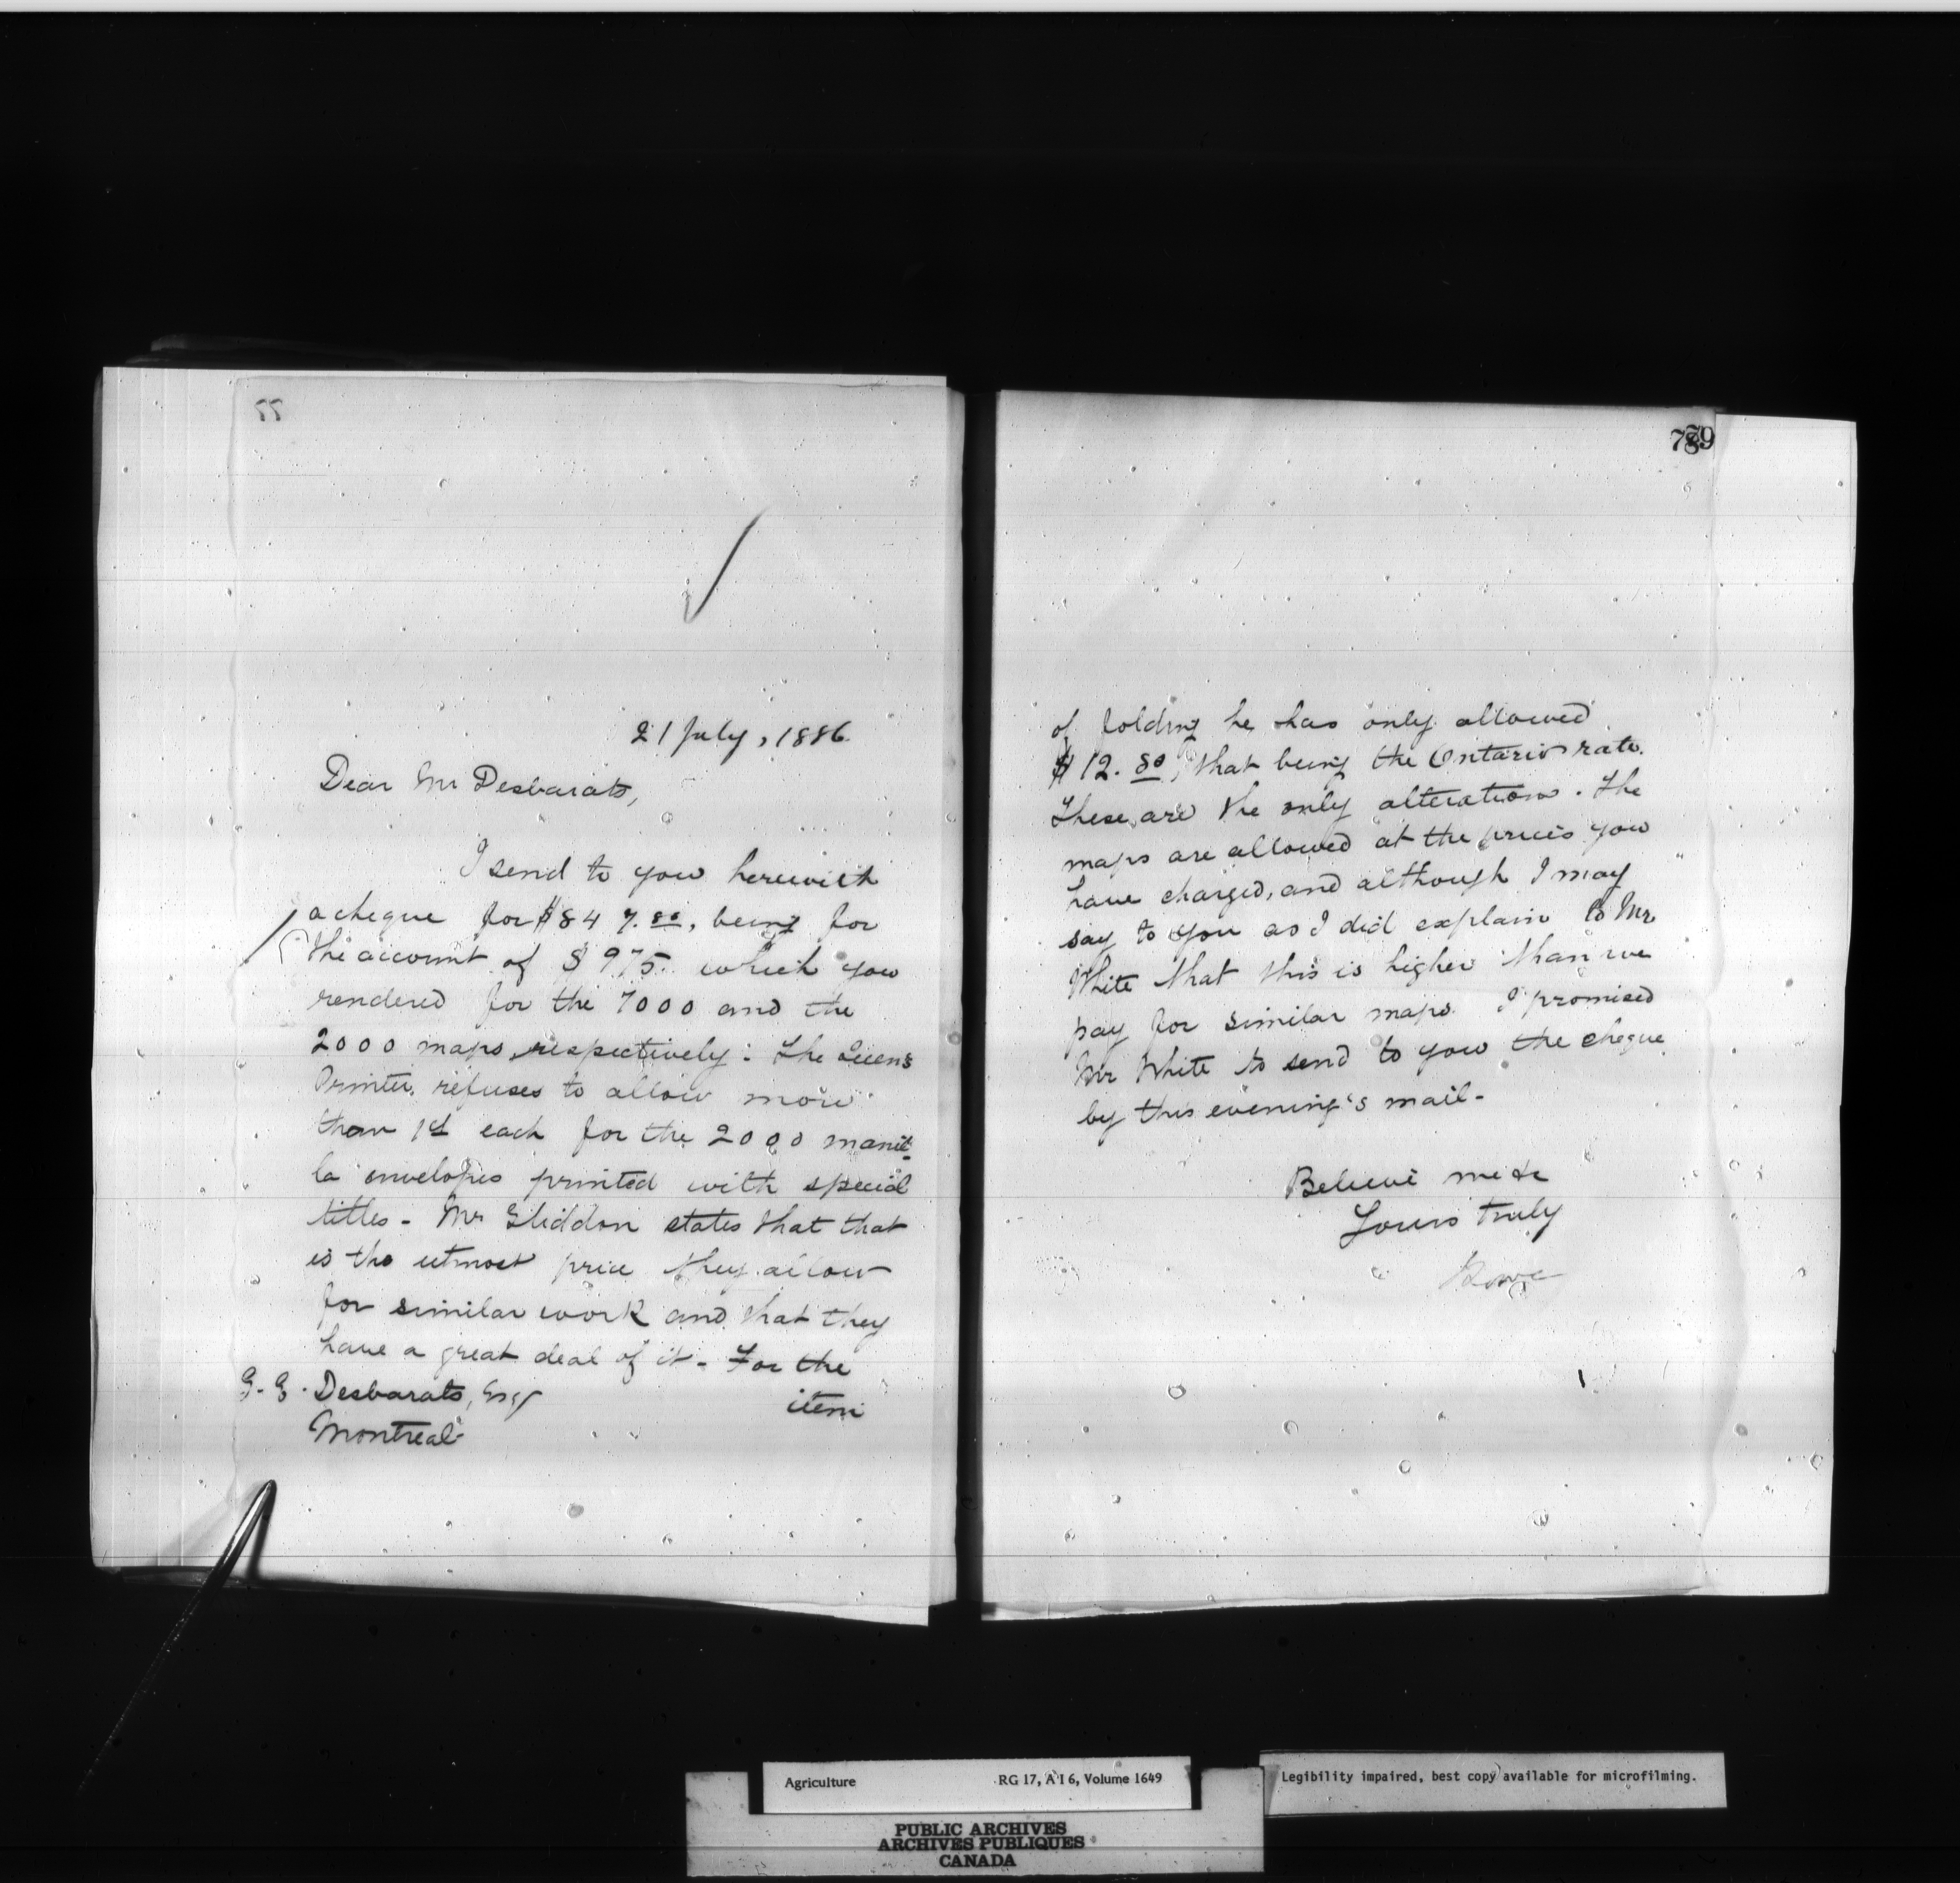 77
21 July, 1886.
Dear Mr Desbarats,
I send to you herewith
a cheque for $847.80, being for
the account of $975. which you
rendered for the 7000 and the
2000 maps respectively: The Queens
Printer refuses to allow more
than 1ct each for the 2000 manil-
la envelopes printed with special
titles - Mr Gliddon states that that
is the utmost price they allow
for similar work and that they
have a great deal of it - For the
item
G. E. Desbarats, Esq
Montreal
789
of folding he has only allowed
$12.80, that being the Ontario rate.
These are the only alterations. The
maps are allowed at the prices you
have charged, and although I may
say to you as I did explain to Mr
White that this is higher than we
pay for similar maps. I promised
Mr White to send to you the cheque
by this evening's mail -
Believe me &c
Yours truly
Agriculture RG 17, A I 6, Volume 1649
Legibility impaired, best copy available for microfilming.
PUBLIC ARCHIVES
ARCHIVES PUBLIQUES
CANADA